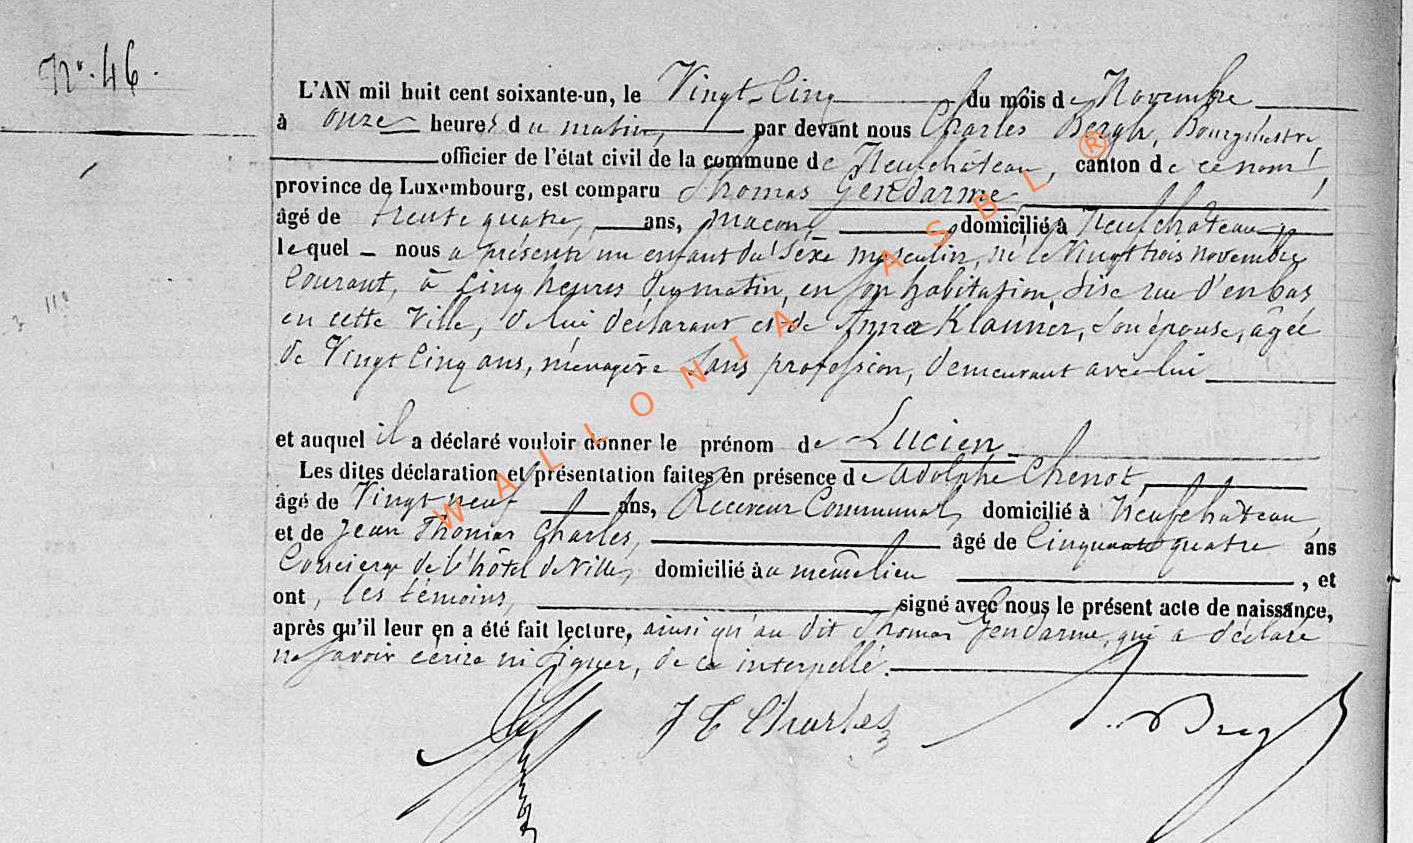 N° 46.
L'AN mil huit cent soixante-un, le Vingt-Cinq du mois de Novembre
à onze heures du matin, par devant nous Charles Bergh, Bourgmestre,
officier de l'état civil de la commune de Neufchâteau, canton de ce nom,
province de Luxembourg, est comparu Thomas Gendarme,
âgé de trente quatre, ans, maçon, domicilié à Neufchâteau,
lequel nous a présenté un enfant du sexe masculin, né le Vingt trois novembre
Courant, à Cinq heures du matin, en son habitation, sise rue d'en bas
en cette Ville, de lui déclarant et de Anna Klauner, son épouse, âgée
de Vingt Cinq ans, ménagère sans profession, demeurant avec lui
et auquel il a déclaré vouloir donner le prénom de Lucien
Les dites déclaration et présentation faites en présence de Adolphe Chenot,
âgé de Vingt neuf ans, Receveur Communal, domicilié à Neufchâteau,
et de Jean Thomas Charles, âgé de Cinquante quatre ans
Concierge de l'hôtel de Ville, domicilié au même lieu , et
ont, les témoins, signé avec nous le présent acte de naissance,
après qu'il leur en a été fait lecture, ainsi qu'au dit Thomas Gendarme, qui a déclaré
ne savoir écrire ni signer, de ce interpellé.
J T Charles
WALLONIA ASBL ®